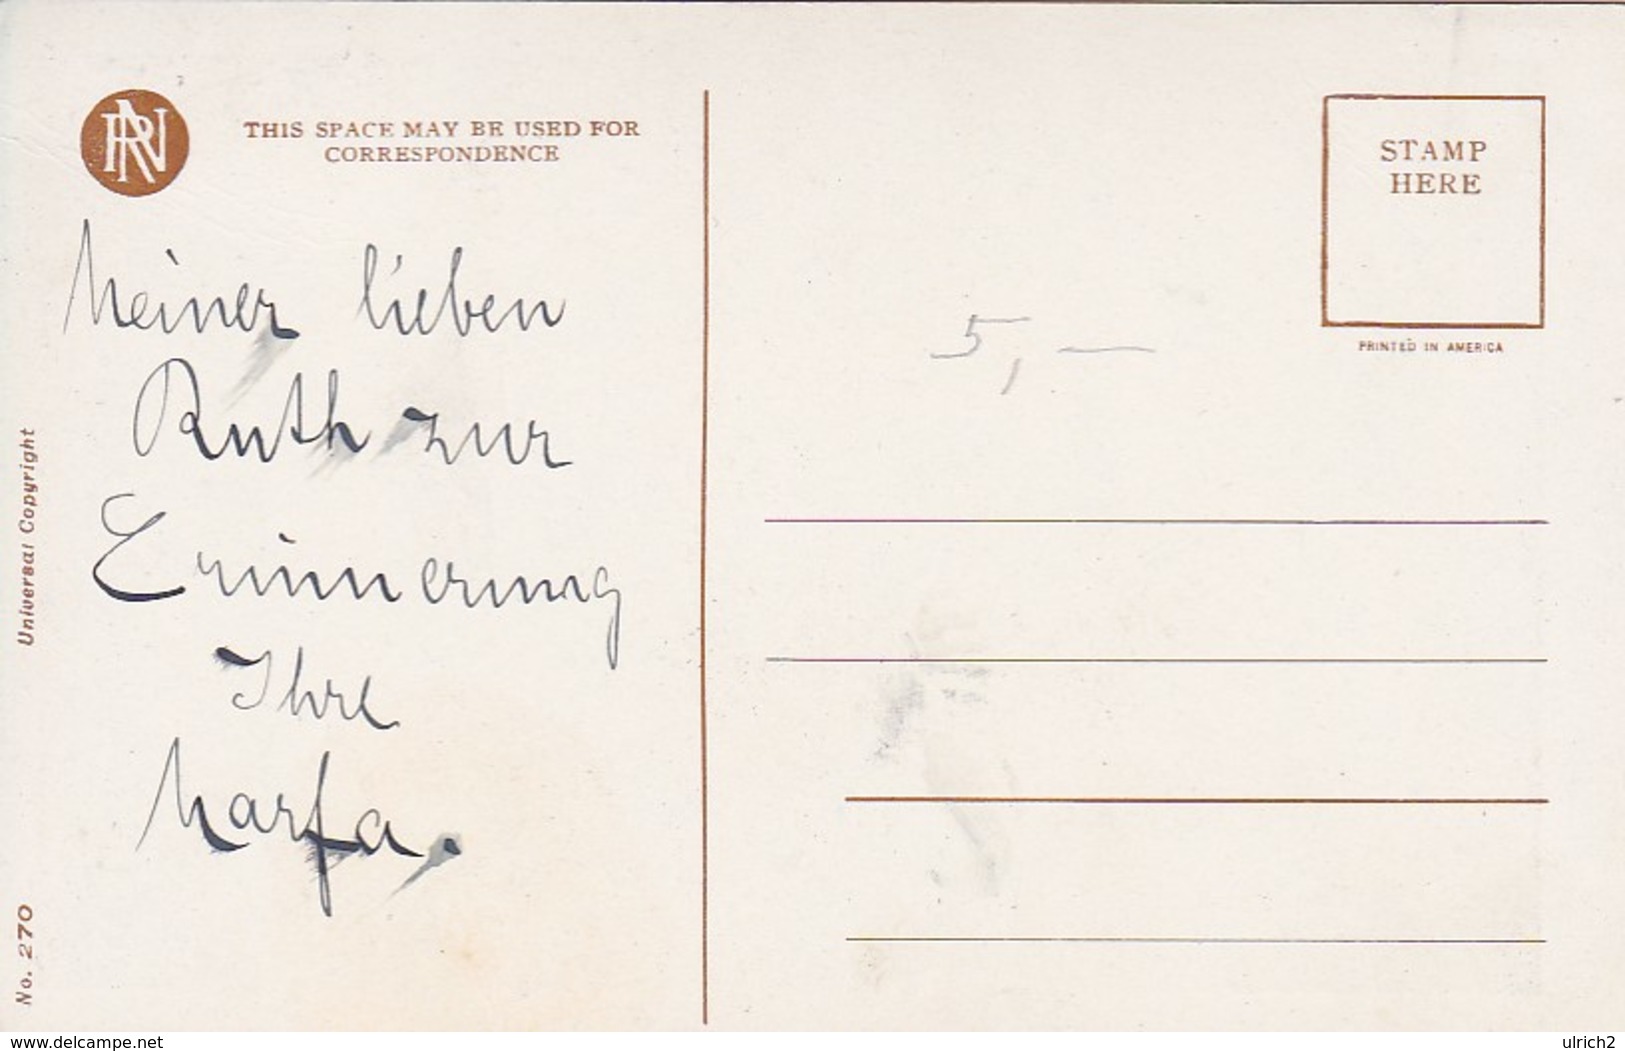 RN
THIS SPACE MAY BE USED FOR
CORRESPONDENCE
Meiner lieben
Ruth zur
Erinnerung
Ihre
Marfa.
Universal Copyright
No. 270
STAMP
HERE
PRINTED IN AMERICA
5,—
www.delcampe.net
ulrich2